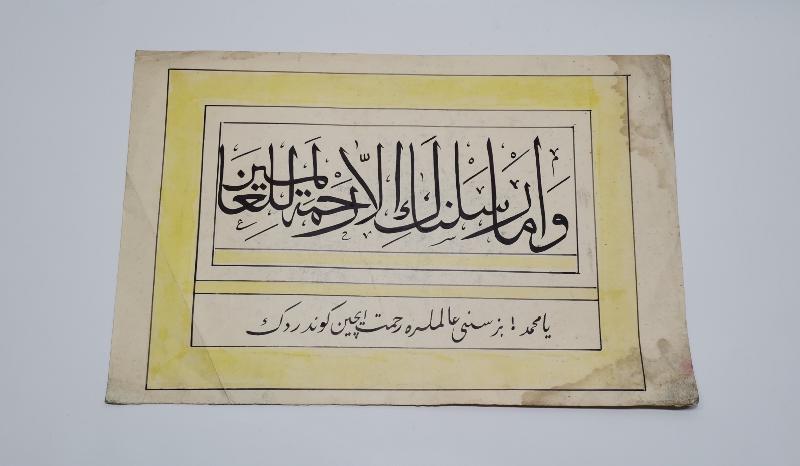 وما أرسلنك إلا رحمة للعالمين
يا محمد! بز سنى عالملره رحمت ایچین كوندردك